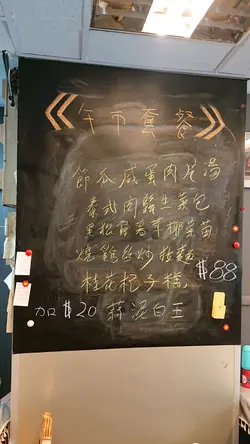 午市套餐
節瓜咸蛋肉片湯
泰式肉鬆生菜包
黑松露春草柳菜苗
燒鵝絲炒拉麵
桂花杞子糕
$88
加$20 蒜泥白玉